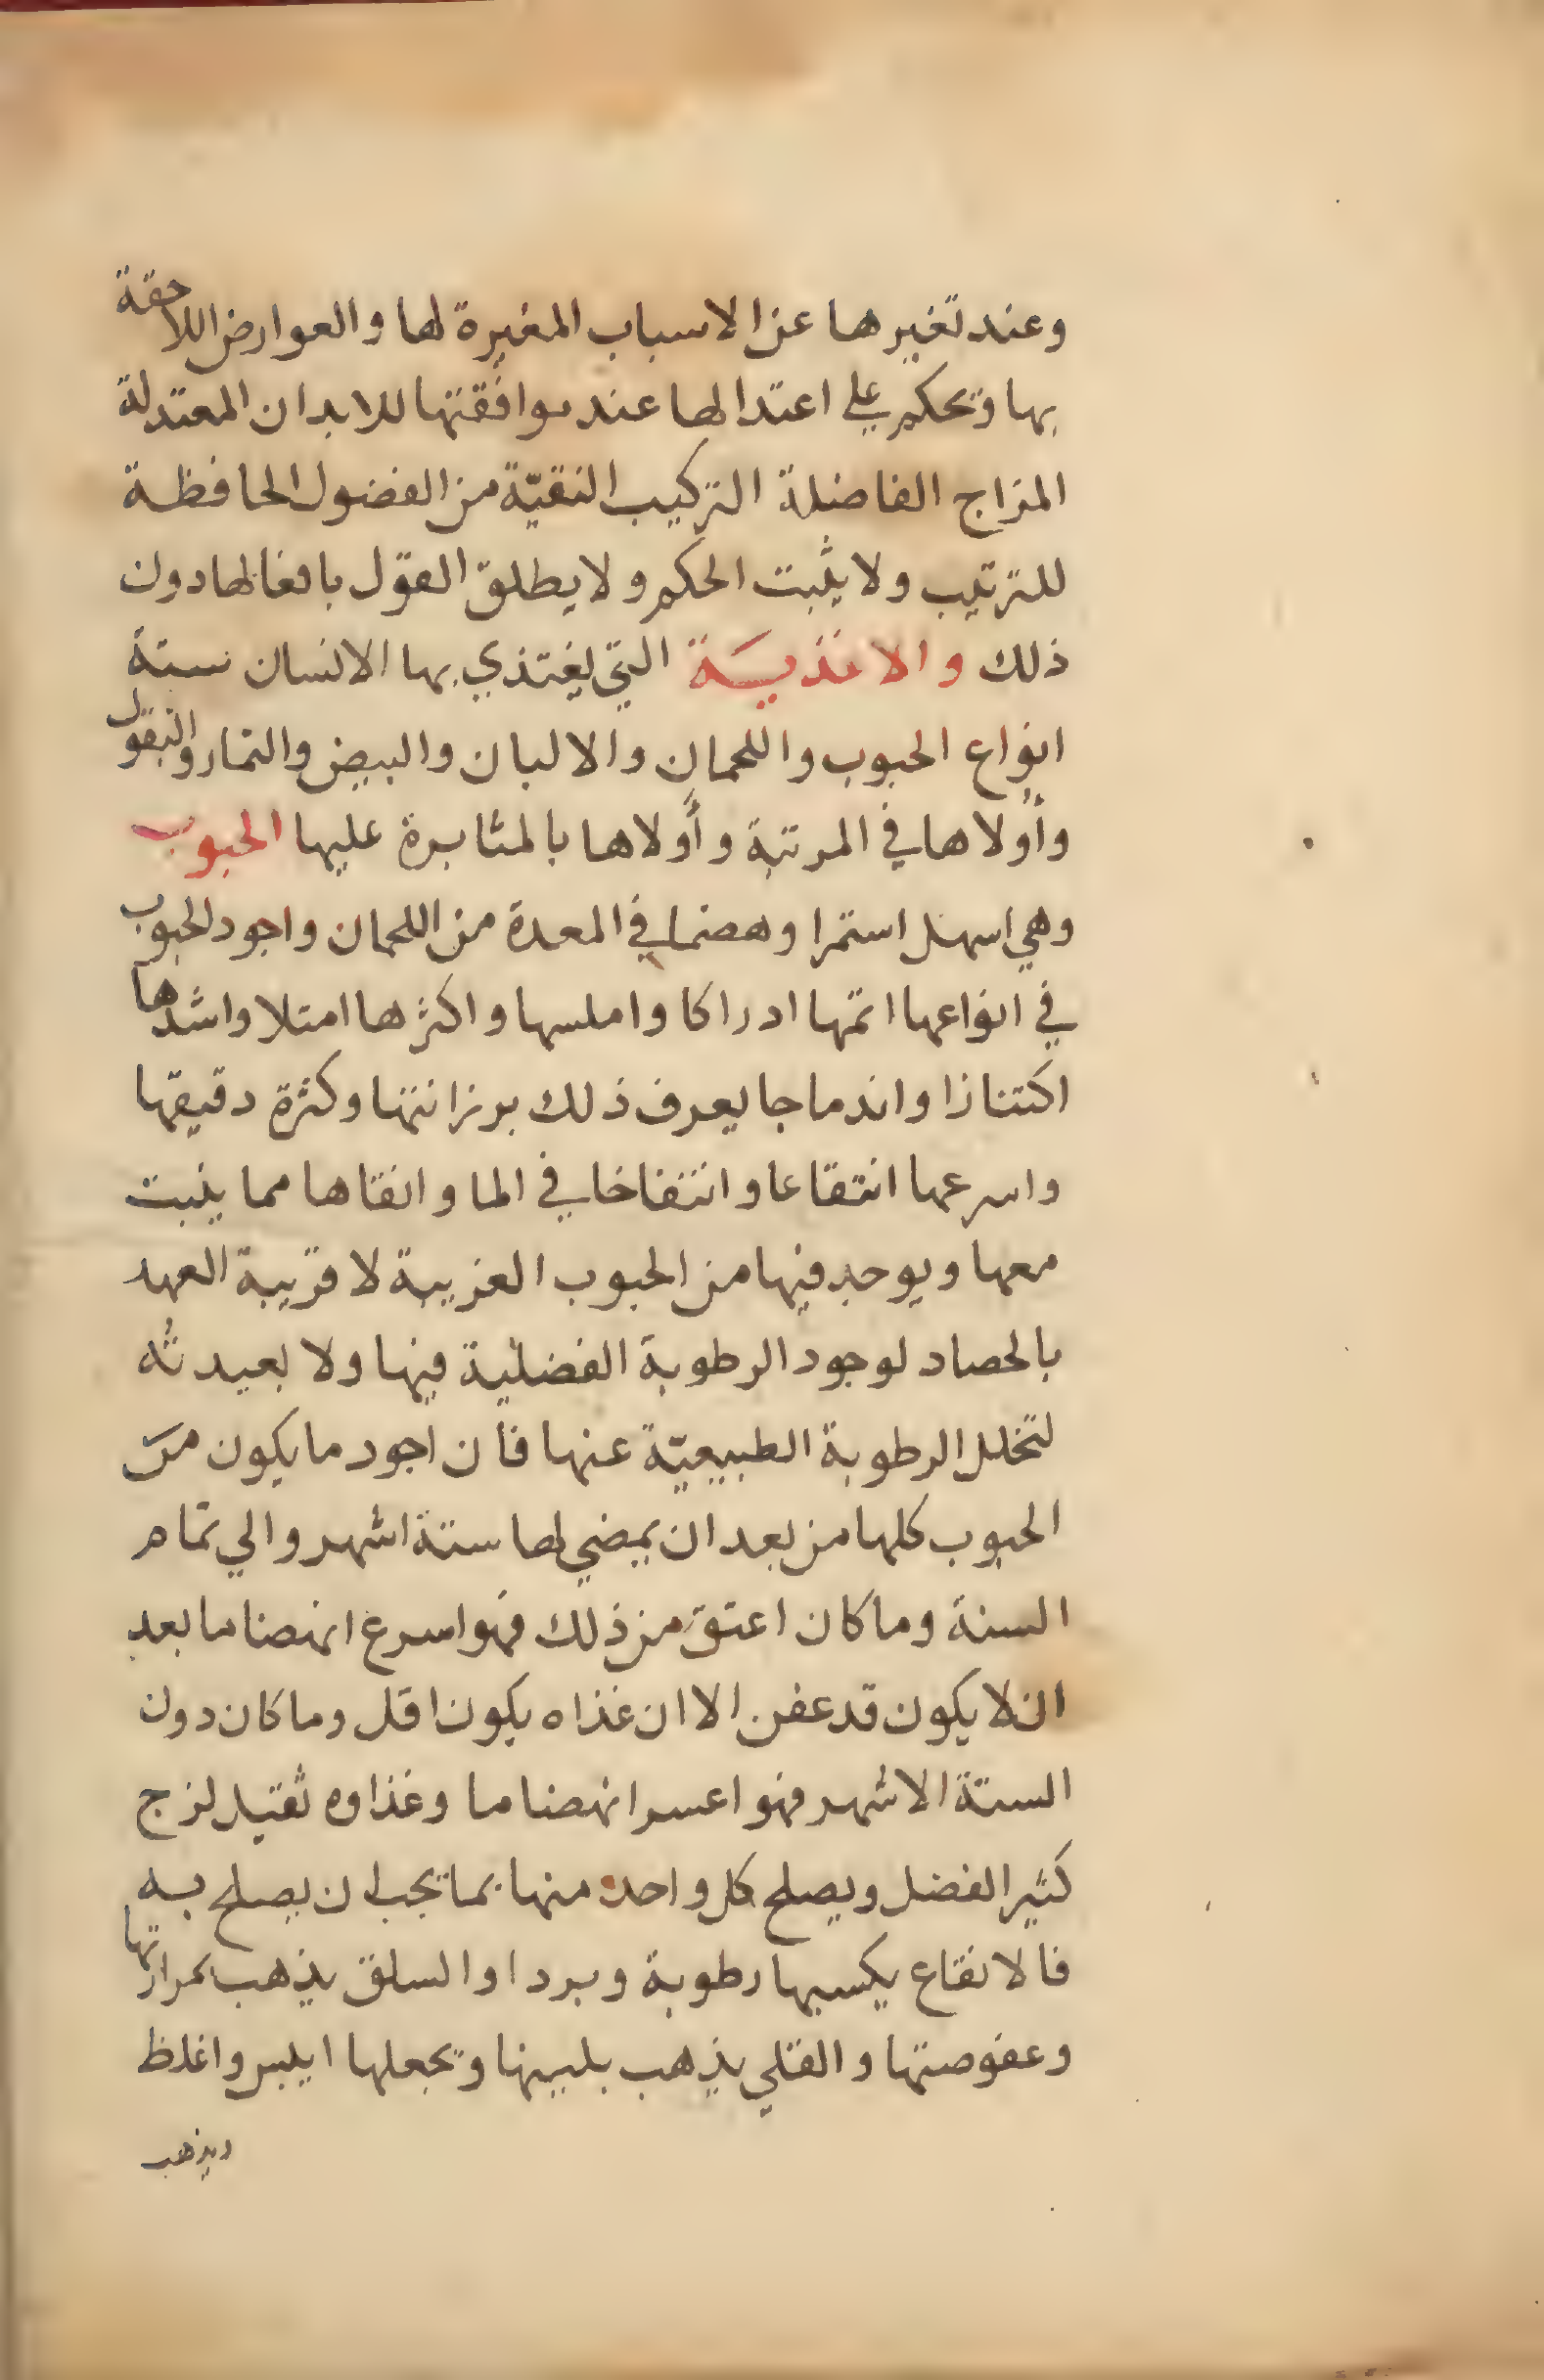 وعند تغيرها عن الاسباب المغيرة لها والعوارض اللاحقة
بها وتحكم علي اعتدالها عند موافقتها للابدان المعتدلة
المزاج الفاضلة التركيب النقيّة من الفضول الحافظة
للترتيب ولا يثبت الحكم ولا يطلق القول بافعالها دون
ذلك والاغذيَة التي يغتذي بها الانسان ستة
انواع الحبوب واللحمان والالبان والبيض والثمار والبقول
وأولاها في المرتبة وأَولاها بالمثابرة عليها الحبوب
وهي اسهل استمرا وهضما في المعدة من اللحمان واجود الحبوب
في انواعها اتمها ادراكا واملسها واكثرها امتلا واشدها
اكتنازا واندماجا يعرف ذلك برزانتها وكثرة دقيقها
واسرعها انتقاعا وانتفاخا في الما وانقاها مما ينبت
معها ويوجد فيها من الحبوب الغريبة لا قريبة العهد
بالحصاد لوجود الرطوبة الفضلية فيها ولا بعيدته
لتحلل الرطوبة الطبيعيّة عنها فان اجود ما يكون من
الحبوب كلها من بعد ان يمضي لها ستة اشهر والي تمام
السنة وما كان اعتق من ذلك فهو اسرع انهضاما بعد
ان لا يكون قد عفن الا ان غذاه يكون اقل وما كان دون
الستة الاشهر فهو اعسر انهضاما وغذاوه ثقيل لزج
كثير الفضل ويصلح كل واحد منها بما يجب ان يصلح به
فالانقاع يكسبها رطوبة وبردا والسلق يذهب بمرارتها
وعفوصتها والقلي يذهب بلينها ويجعلها ايبس واغلظ
ويذهب